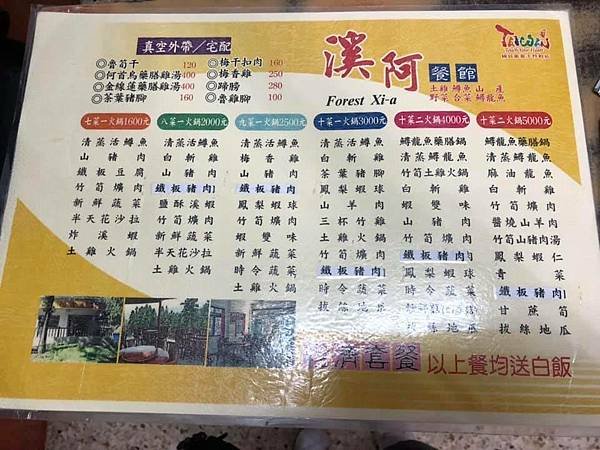 真空外帶／宅配
◎魯筍干 120
◎何首烏藥膳雞湯400
◎金線蓮藥膳雞湯400
◎茶葉豬腳 160
◎梅干扣肉 160
◎梅香雞 250
◎蹄膀 280
◎魯雞腳 100
溪阿
餐館
Forest Xi-a
土雞 鱒魚 山產
野菜 台菜 鱘龍魚
TAIWAN
Touch Your Heart
七菜一火鍋1600元
清蒸活鱒魚
山豬肉
鐵板豆腐
竹筍爌肉
新鮮蔬菜
半天花沙拉
炸溪蝦
土雞火鍋
八菜一火鍋2000元
清蒸活鱒魚
白斬雞
山豬肉
鐵板豬肉
鹽酥溪蝦
竹筍爌肉
新鮮蔬菜
半天花沙拉
土雞火鍋
九菜一火鍋2500元
清蒸活鱒魚
梅香雞
山豬肉
鐵板豬肉
鳳梨蝦球
竹筍爌肉
蝦雙味
新鮮蔬菜
時令蔬菜
土雞火鍋
十菜一火鍋3000元
清蒸活鱒魚
白斬雞
茶葉豬腳
鳳梨蝦球
山羊肉
三杯竹雞
土雞火鍋
竹筍爌肉
鐵板豬肉
時令蔬菜
拔絲地瓜
十菜二火鍋4000元
鱘龍魚藥膳鍋
清蒸鱒龍魚
竹筍土雞火鍋
白斬雞
蝦雙味
山豬肉
竹筍爌肉
鐵板豬肉
鳳梨蝦球
時令蔬菜
拔絲地瓜
十菜二火鍋5000元
鱘龍魚藥膳鍋
清蒸鱒龍魚
麻油龍魚
白斬雞
竹筍爌肉
醬燒山羊肉
竹筍山豬肉湯
鳳梨蝦仁
青菜
鐵板豬肉
甘蔗筍
拔絲地瓜
經濟套餐 以上餐均送白飯